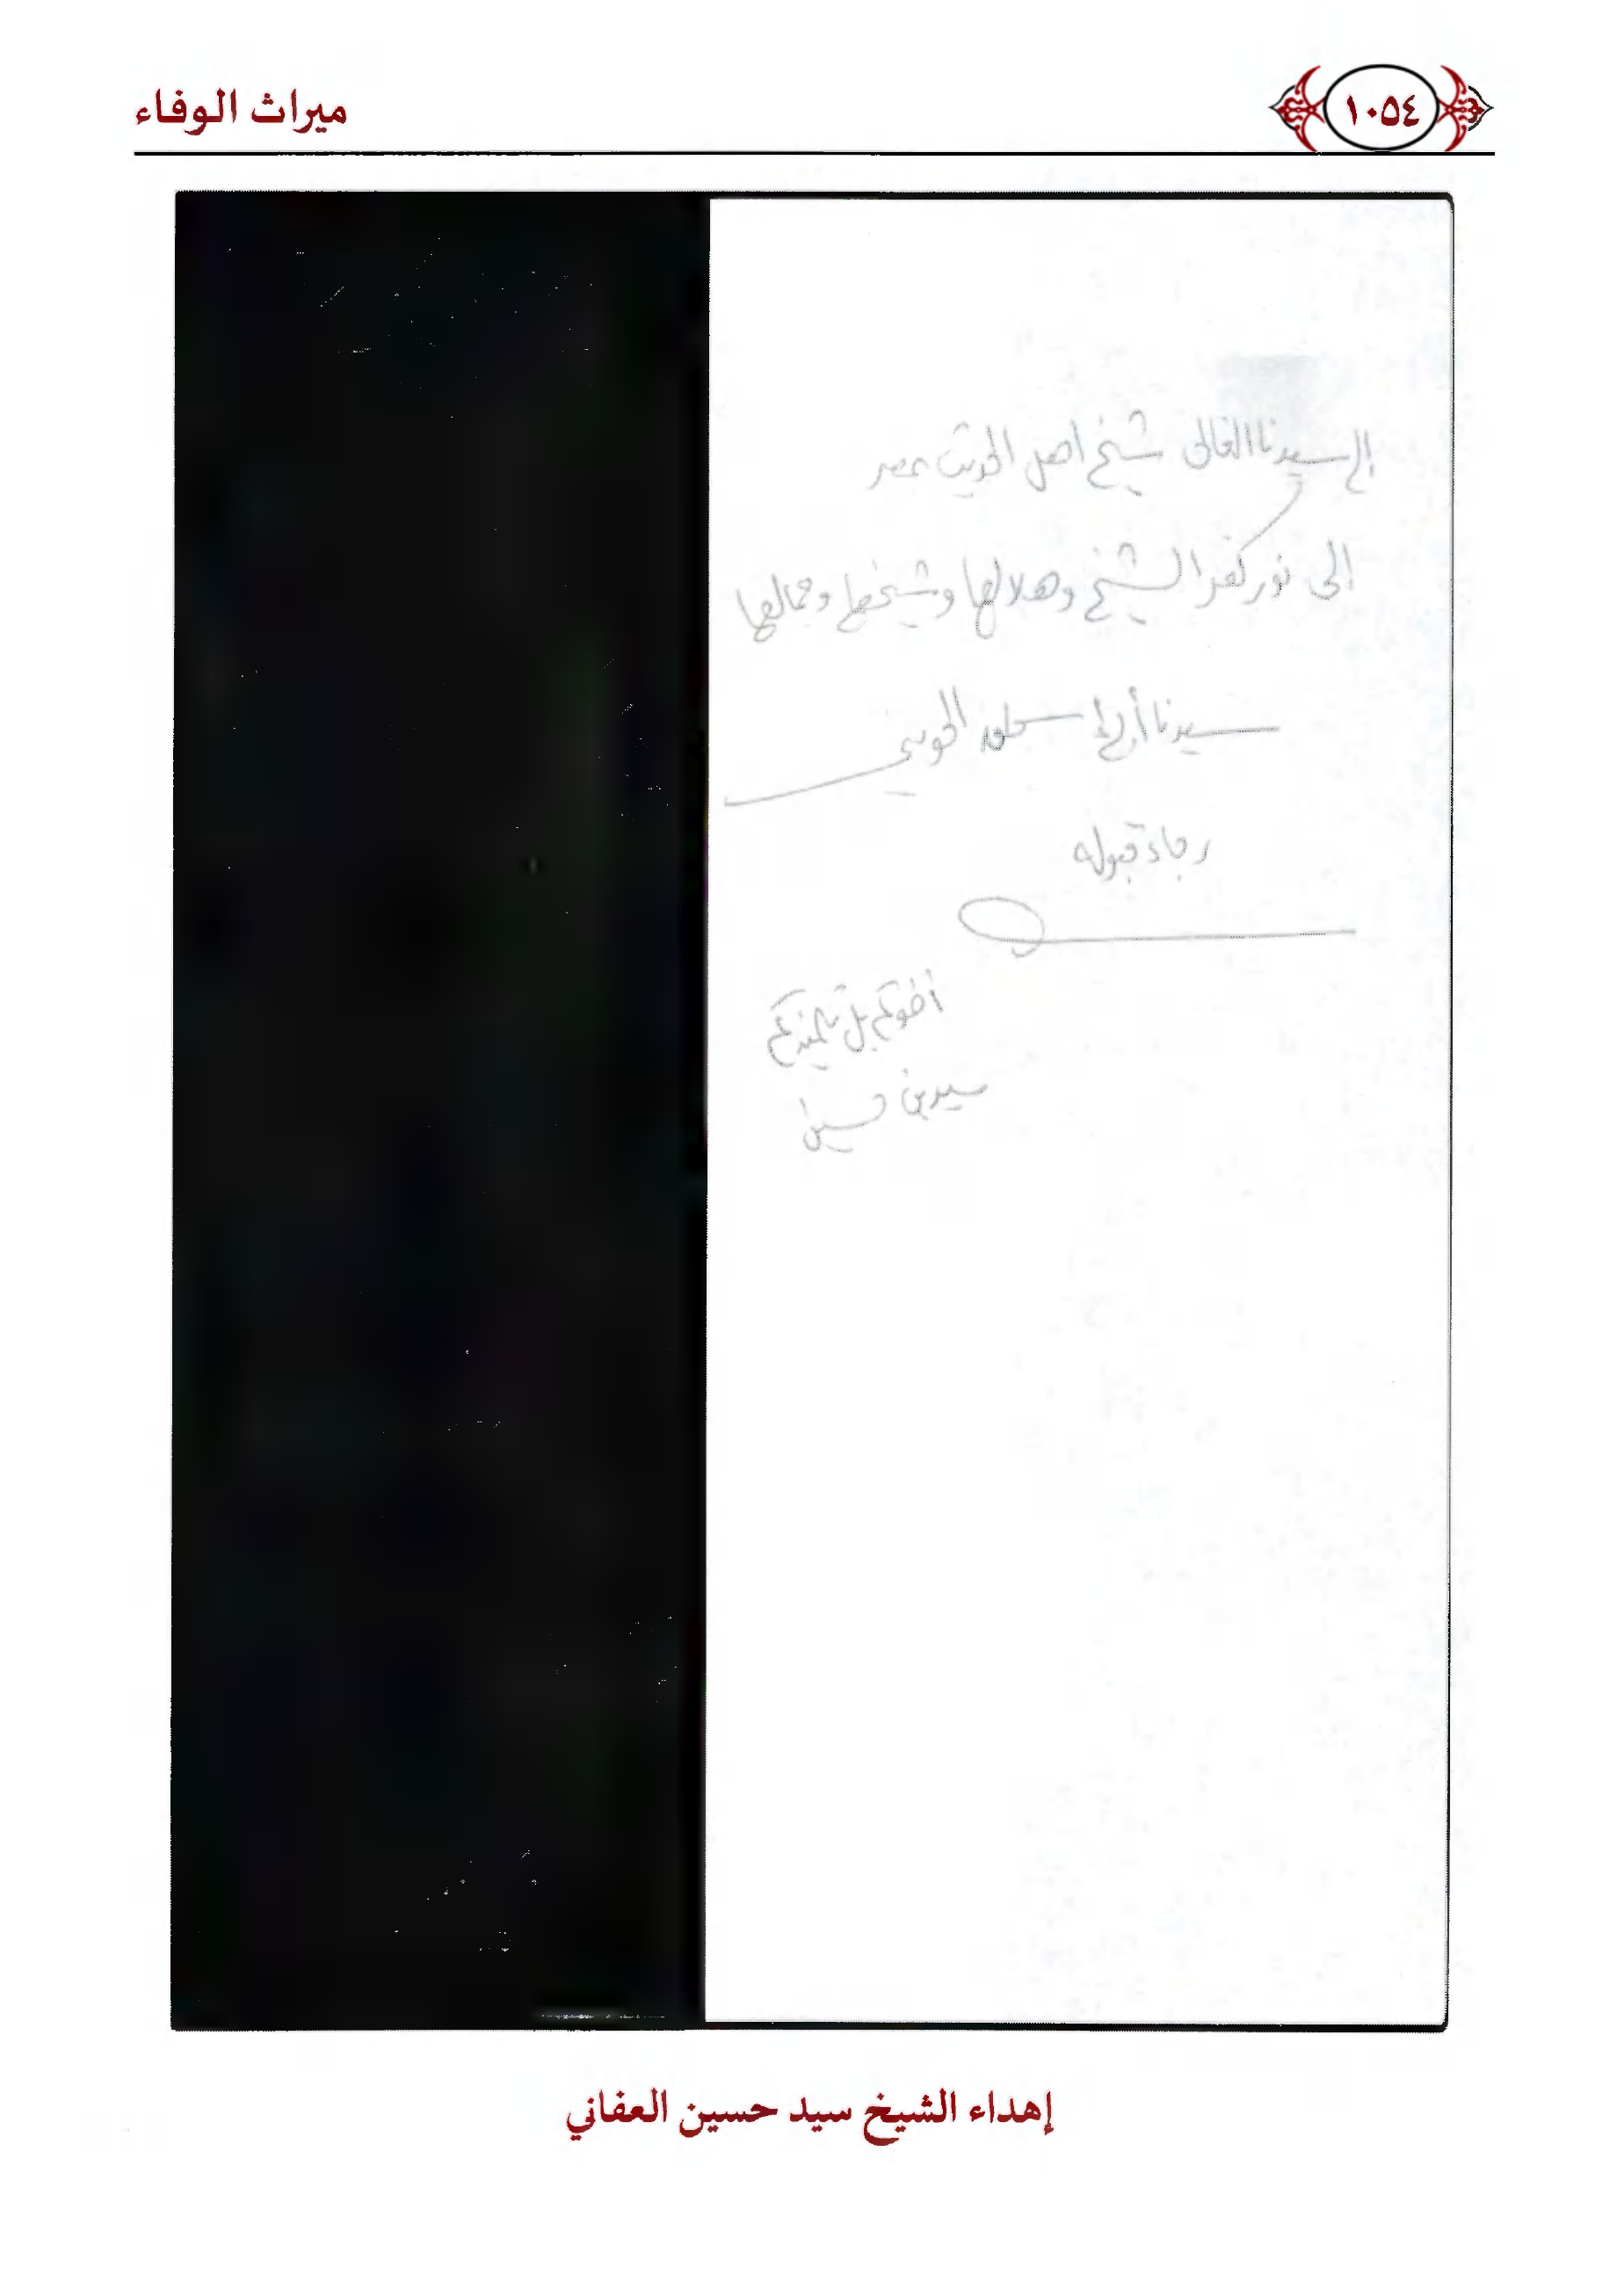 ميراث الوفاء
١٠٥٤
إلى سيدنا الغالي شيخ أهل الحديث بمصر
إلى نور كفر الشيخ وهلالها وشيخها وجمالها
سيدنا أبي إسحاق الحويني
رجاء قبوله
أخوكم بل تلميذكم
سيد بن حسين
إهداء الشيخ سيد حسين العفاني